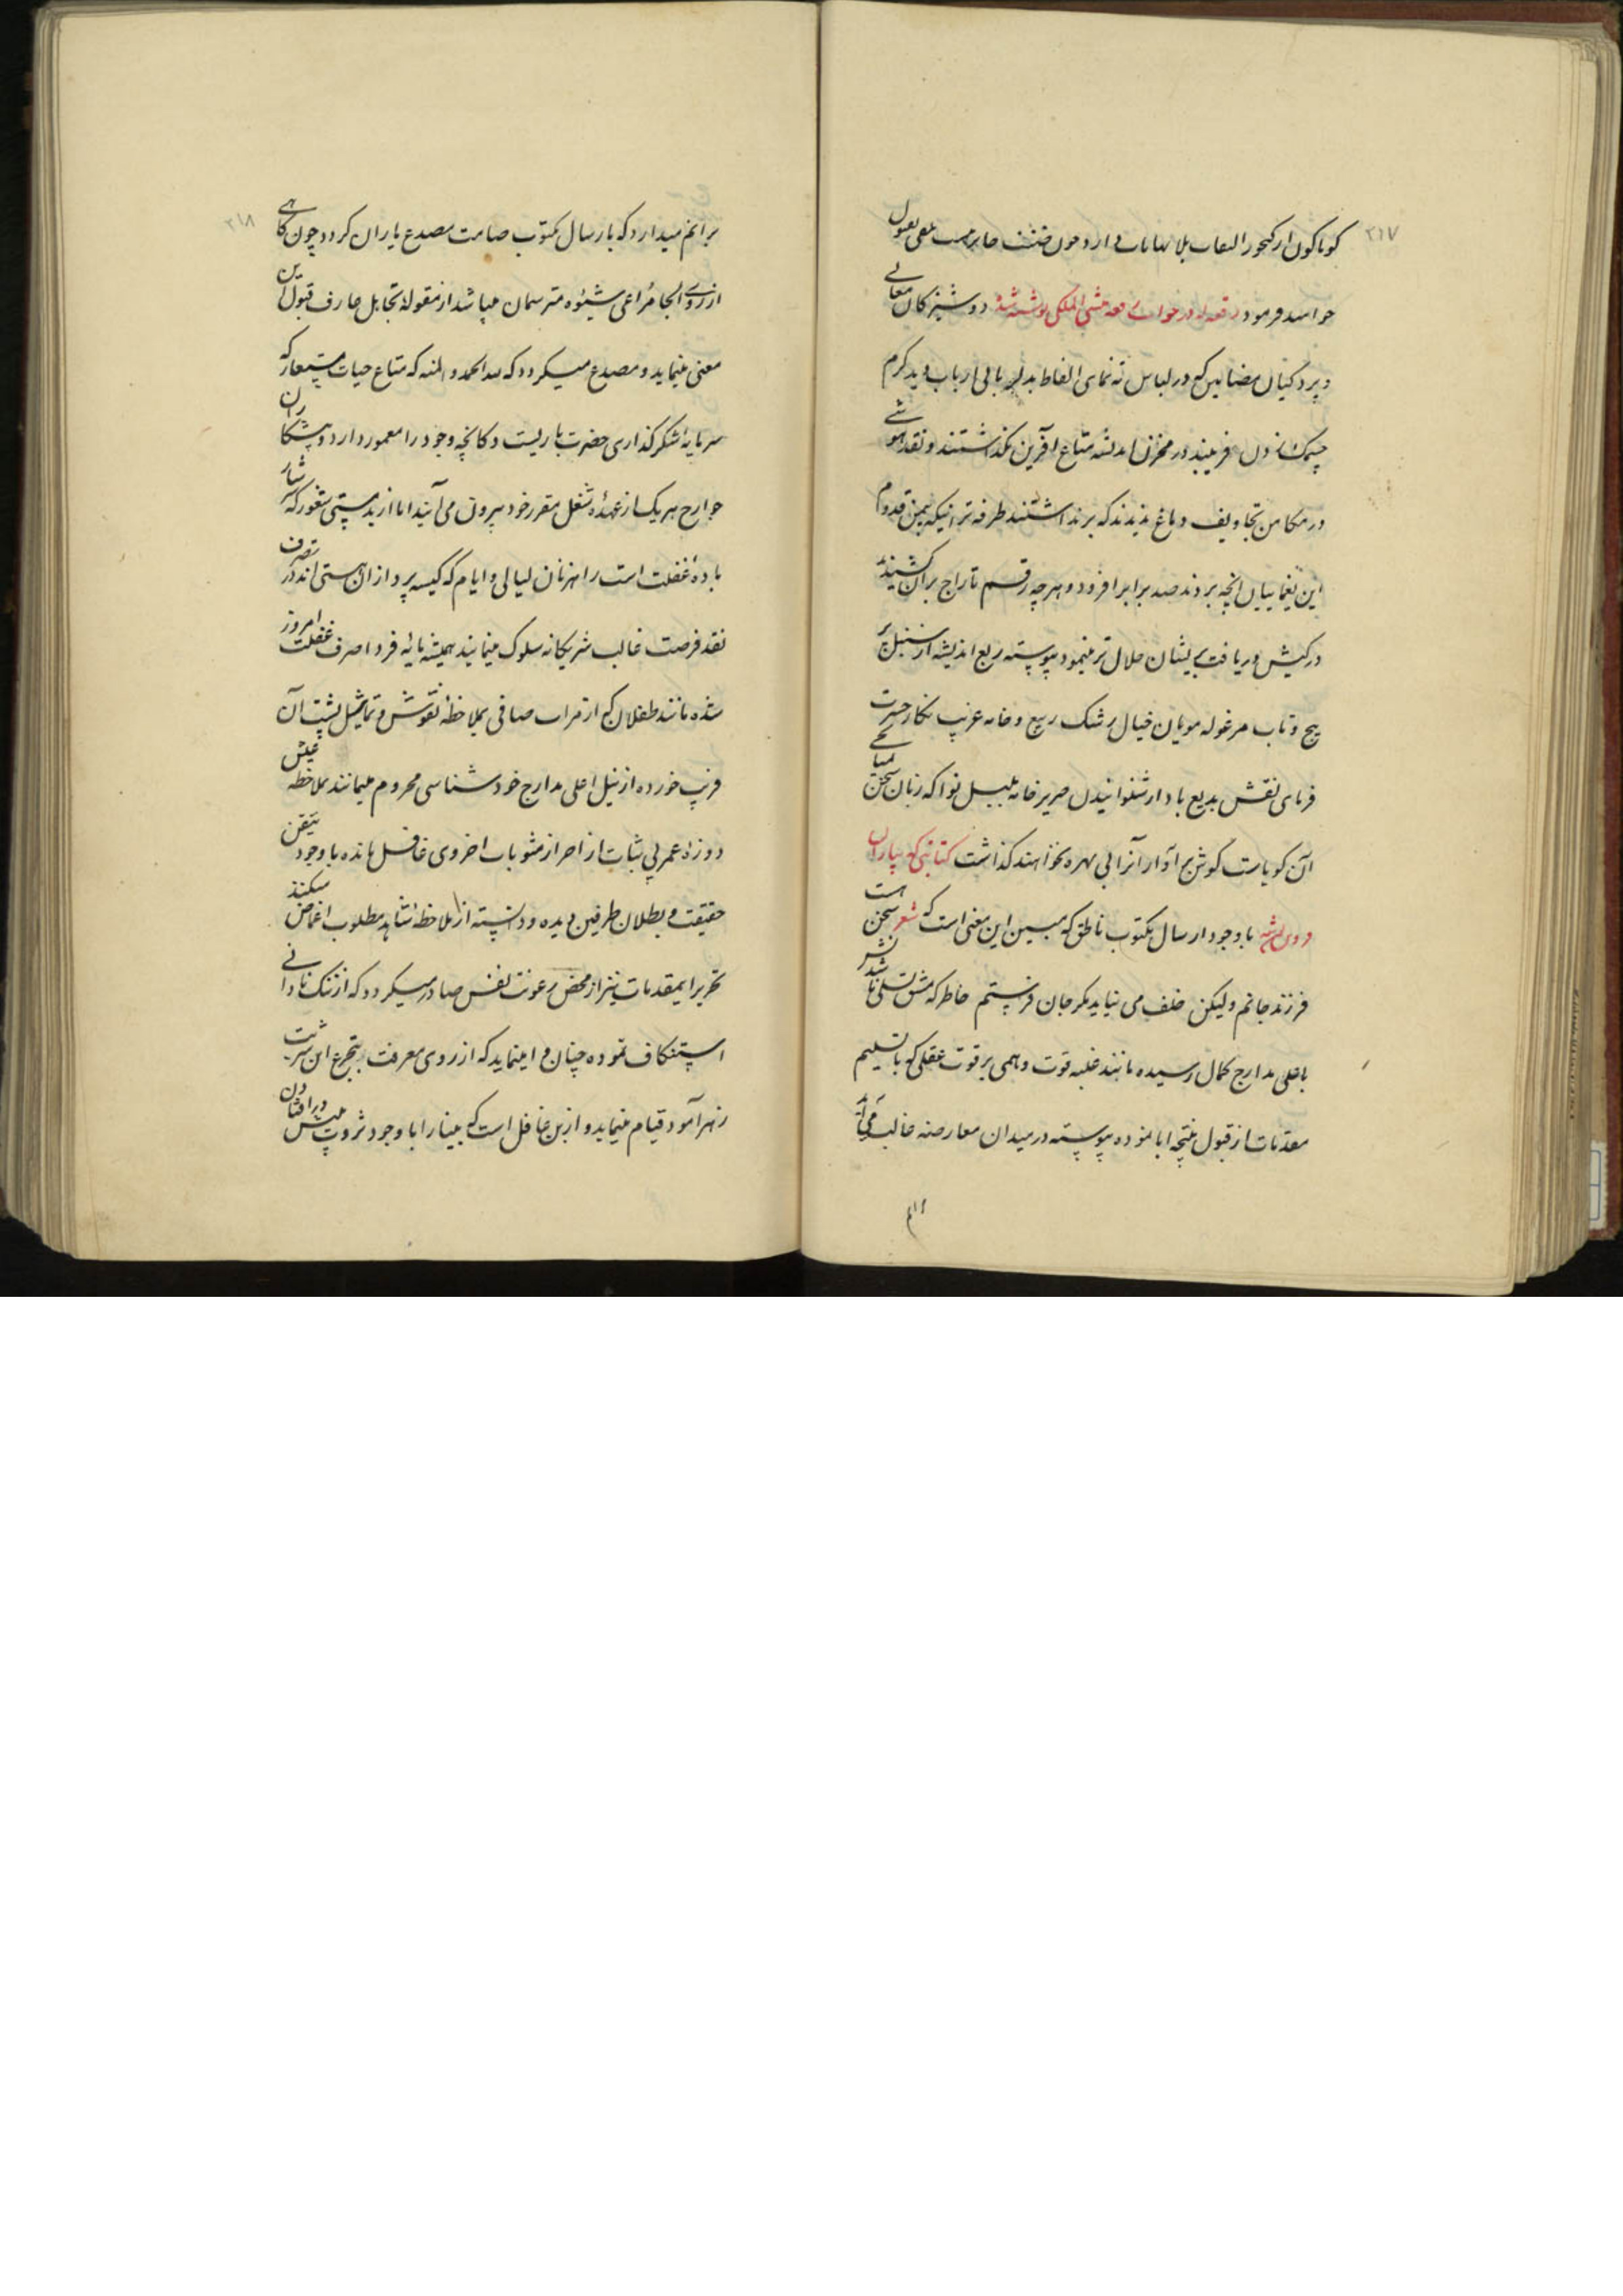 ۲۱۷
کوناکون از کنجور التفات بلا نهایات دارد چون
خواهند فرمود رقعه که در جواب رقعه منشی الملکی نوشته شد دوشیزکان معانی
و پردکیان مضامین که در لباس ته نمای الفاظ بدلربائی ارباب دید کرم
چشمک زدن فریبند در مخزن اندیشه متاع آفرین نکذاشتند و نقد هوشی
در مکامن تجاویف دماغ ندیدند که برنداشتند طرفه تر اینکه بیمن قدوم
این یغمائیان انچه بردند صد برابر افزود و هرچه رقم تاراج بران کشیدند
در کیش دریافت بر ایشان حلال تر نمیمود پیوسته ربع اندیشه از سنبل پر
پیچ و تاب مرغوله مویان خیال رشک ربیع و خامه غریب نکار حسرت
فرمای نقش بدیع باد از شنوانیدن صریر خامه بلبل نوا که زبان سخن سنجی
آن کویاست کوش بر آواز آنرا بی بهره نخواهند کذاشت کتابتی که بیاران
نوشته با وجود ارسال مکتوب ناطق که مبین این معنی است که شعر سخن هست
فرزند جانم ولیکن خلف می نیاید مکر جان فرستم خاطر که مشق تسلی ناشدنیش
باعلی مدارج کمال رسیده مانند غلبه قوت وهمی بر قوت عقلی که با تسلیم
مقدمات از قبول نتیجه ابا نموده پیوسته در میدان معارضه غالب می آید
۲۱۸
برانم میدارد که بارسال مکتوب صامت مصدع یاران کردد چون کاهی
از روی الجا مراعی شیئوه مترسمان میباشد از مقوله تجاهل عارف قبول این
معنی مینماید و مصدع میکردد که لله الحمد و المنه که متاع حیات مستعار که
سرمایه شکرکذاری حضرت باریست دکانچه وجود را معمور دارد و پیشکاران
جوارح هر یک از عهده شغل مقرر خود بیرون می آیند اما از بدمستی شعور که سرشار
باده غفلت است راهزنان لیالی و ایام که کیسه پردازان هستی اند در تصرف
نقد فرصت غالب شریکانه سلوک مینمایند همیشه مایه فردا صرف غفلت امروز
شده مانند طفلان که از مرآت صافی بملاحظه نقوش و تماثیل پشت آن
فریب خورده از نیل اعلی مدارج خودشناسی محروم میمانند بملاحظه عیش
دوروزه عمر بی ثبات از احراز مثوبات اخروی غافل مانده با وجود تیقن
حقیقت و بطلان طرفین دیده و دانسته از ملاحظه شاهد مطلوب اغماض میکند
تحریر اینمقدمات نیز از محض رعونت نفس صادر میکردد که از ننک نادانی
استنکاف نموده چنان وا مینماید که از روی معرفت بتجرع این شربت
زهرآمود قیام مینماید و ازین غافل است که بینا را با وجود ثروت بینش در افتادن